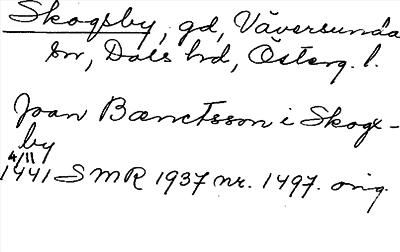 Skogsby, gd, Väversunda
sn, Dals hd, Österg. l.
Joan Bænctsson i Skogx-
by
4/11
1441 SMR 1937 nr. 1497. orig.